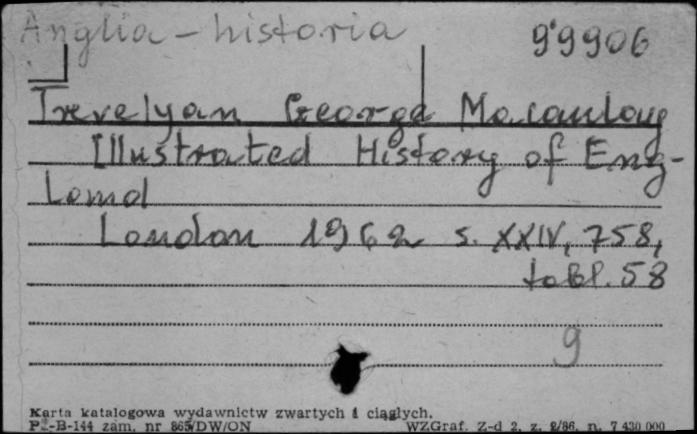 Anglia - historia
99906
Trevelyan George Macaulay
Illustrated History of Eng-
land
London 1962 s. XXIV, 758,
tabl. 58
9
Karta katalogowa wydawnictw zwartych i ciągłych.
Pu-B-144 zam. nr 865/DW/ON WZGraf. Z-d 2, z. 2/86, n. 7 430 000